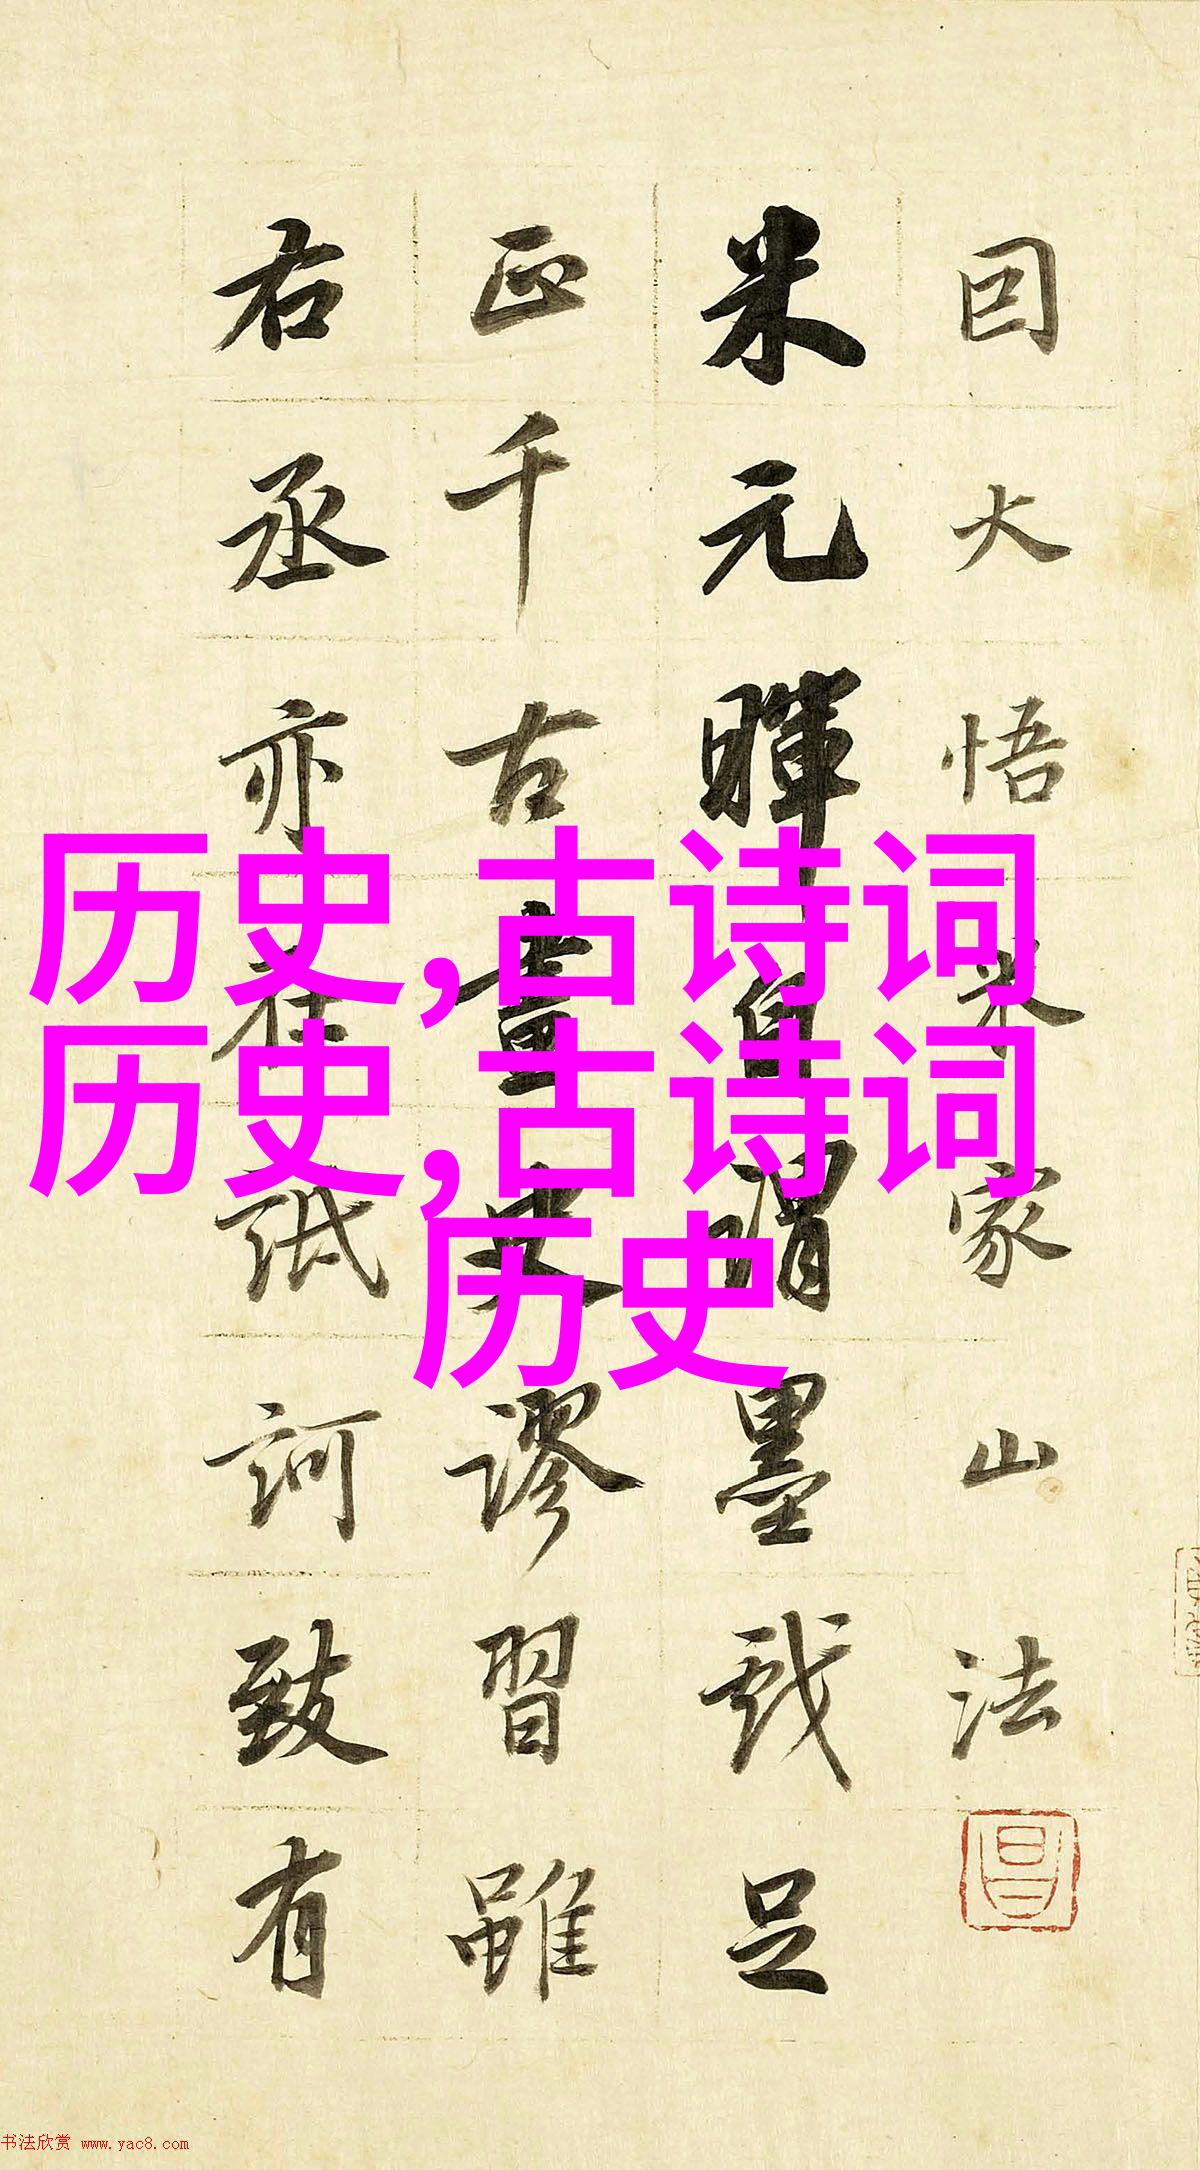 囙大悟米家山法
米元暉自謂墨戲足
正千古畫史謬習雖
右丞亦在詆訶致有
历史,古诗词
历史,古诗词
历史
书法欣赏 www.yac8.com